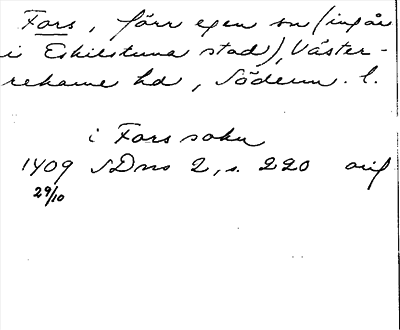 Fors, förr egen sn (ingår
i Eskilstuna stad), Väster-
rekarne hd, Söderm. l.
i Fors sokn
1409 SDns 2, s. 220 orig
29/10